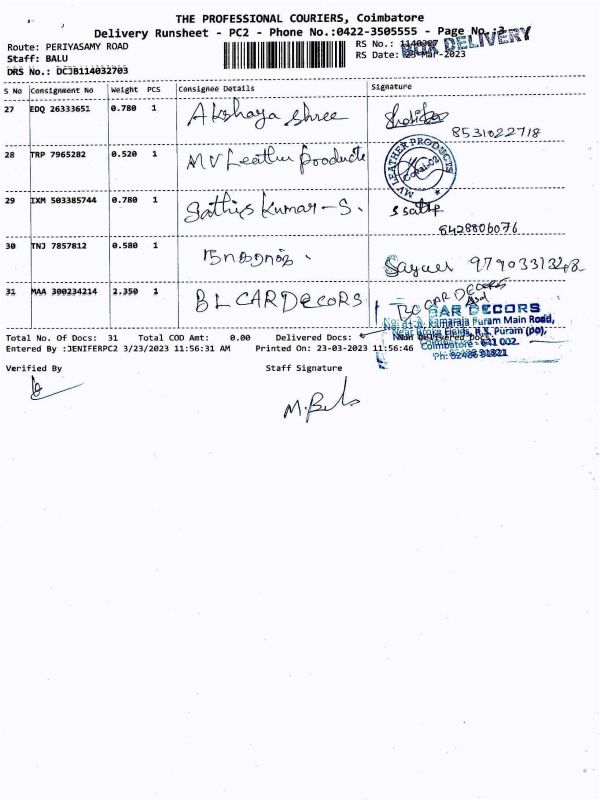 THE PROFESSIONAL COURIERS, Coimbatore
Delivery Runsheet - PC2 - Phone No.:0422-3505555 - Page No.:
BOX DELIVERY
Route: PERIYASAMY ROAD
RS No.:
Staff: BALU
RS Date: 23-Mar-2023
DRS No.: DCJB114032703
S No Consignment No Weight PCS Consignee Details Signature
27 EDQ 26333651 0.780 1 Akshaya Shree
8531022718
28 TRP 7965282 0.520 1 MV Leather Products
MV LEATHER PRODUCTS
29 IXM 503385744 0.780 1 Sathis Kumar-S.
8428806076
30 TNJ 7857812 0.580 1
31 MAA 300234214 2.350 1 BL CAR DECORS CAR DECORS
CAR DECORS
Kamaraja Puram Main Road,
R.S. Puram (po),
Coimbatore - 641 002.
Total No. Of Docs: 31 Total COD Amt: 0.00 Delivered Docs: Non Delivered Docs:
Entered By :JENIFERPC2 3/23/2023 11:56:31 AM Printed On: 23-03-2023 11:56:46
Verified By Staff Signature